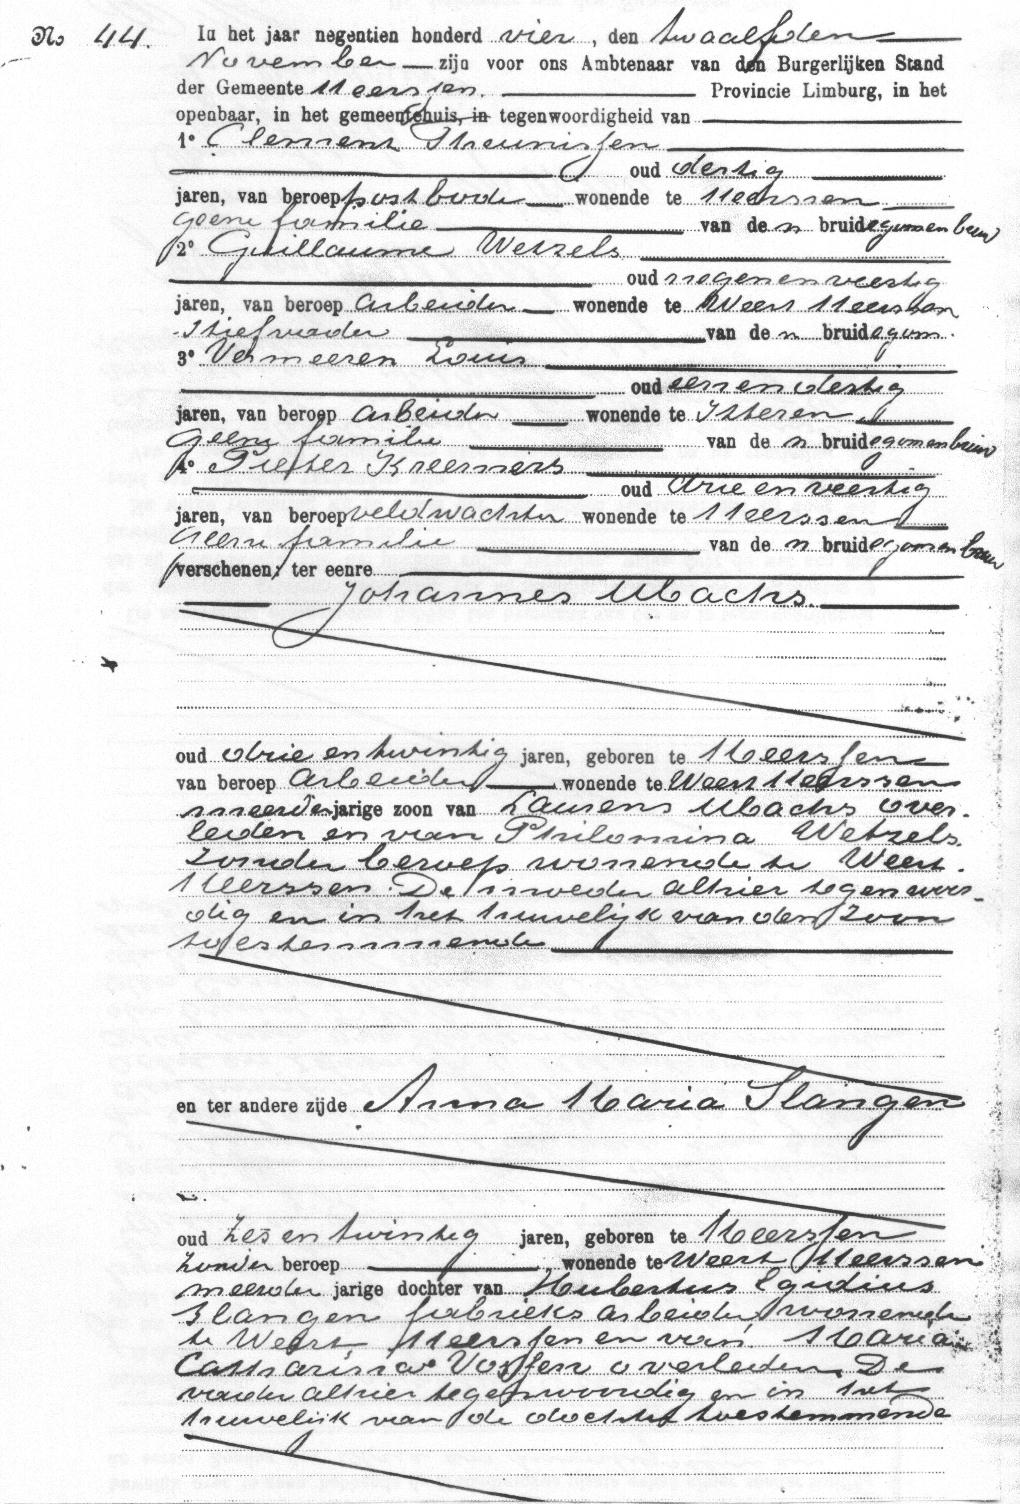 No 44. In het jaar negentien honderd vier, den twaalfden
November zijn voor ons Ambtenaar van den Burgerlijken Stand
der Gemeente Meerssen. Provincie Limburg, in het
openbaar, in het gemeentehuis, in tegenwoordigheid van
1° Clement Theunissen
oud dertig
jaren, van beroep postbode wonende te Meerssen
geene familie van de n bruidegom en bruid
2° Guillaume Wetzels
oud negenenveertig
jaren, van beroep arbeider wonende te Weert Meerssen
Stiefvader van de n bruidegom.
3° Vermeeren Louis
oud eenendertig
jaren, van beroep arbeider wonende te Itteren
geene familie van de n bruidegom en bruid
4° Pieter Kreemers
oud drieenveertig
jaren, van beroep veldwachter wonende te Meerssen
Geene familie van de n bruidegom en bruid
verschenen: ter eenre
Johannes Ubachs.
oud drie en twintig jaren, geboren te Meerssen
van beroep arbeider wonende te Weert Meerssen
meerderjarige zoon van Laurens Ubachs over-
leden en van Philomina Wetzels.
zonder beroep wonende te Weert.
Meerssen. De moeder alhier tegenwoor-
dig en in het huwelijk van den zoon
toestemmende
en ter andere zijde Anna Maria Slangen
oud zes en twintig jaren, geboren te Meerssen
zonder beroep wonende te Weert Meerssen
meerder jarige dochter van Hubertus Egidius
Slangen fabrieks arbeider wonende
te Weert Meerssen en van Maria
Catharina Vossen overleden. De
vader alhier tegenwoordig en in het
huwelijk van de dochter toestemmende